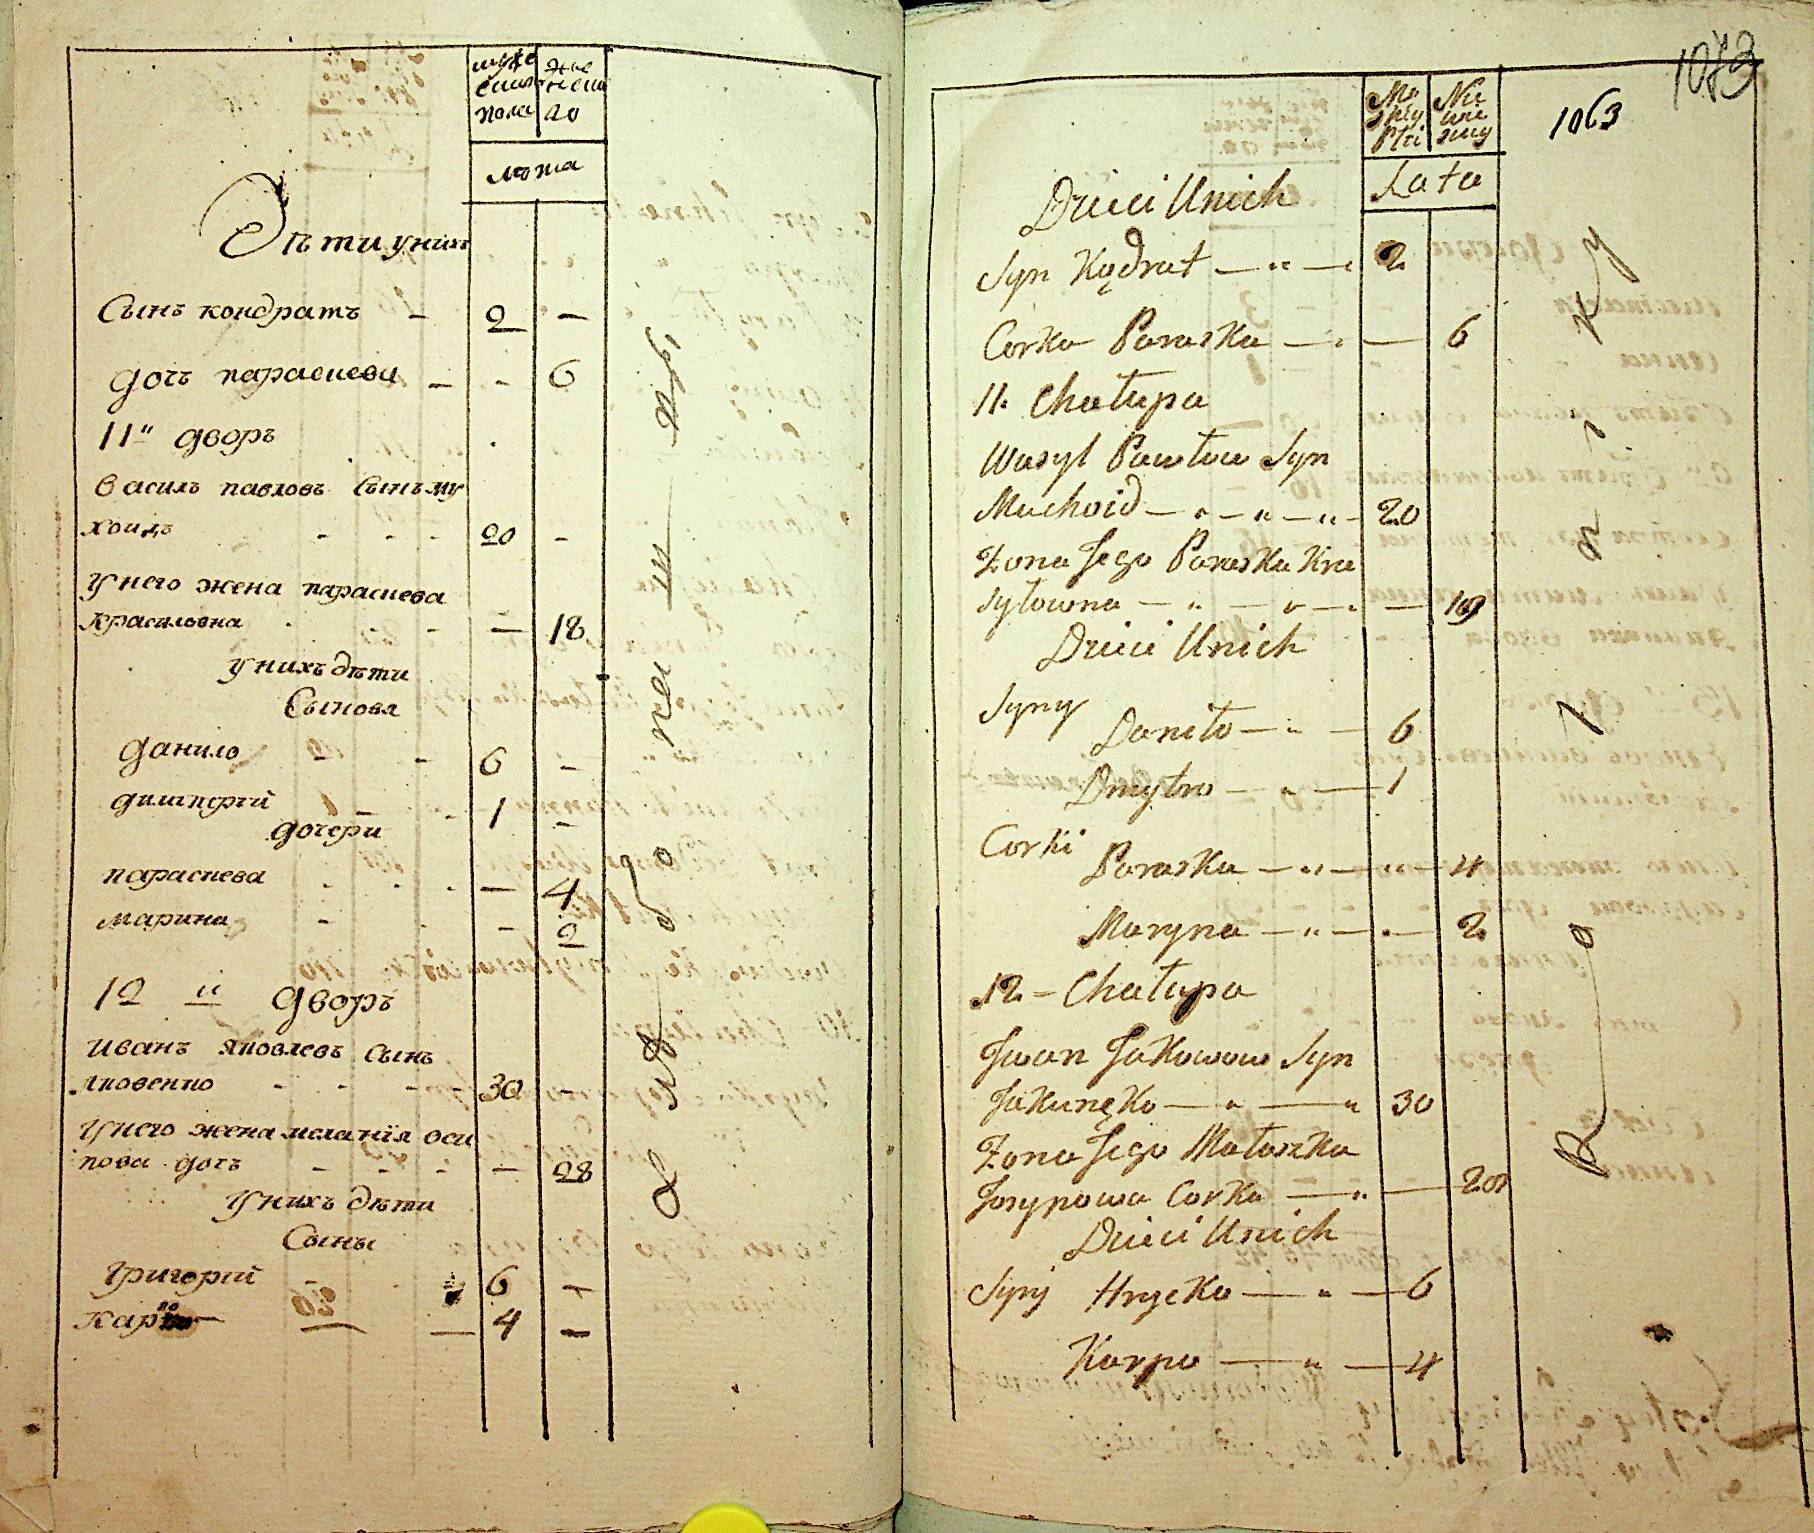 мужеска пола
женска до
лѣта
Дѣти у нихъ
Сынъ кондратъ - 2 -
дочь парасиева - - 6
11й дворъ
василь павловъ сынъ му
хоидъ - - - 20 -
У него жена парасиева
красиловна - - 18
у нихъ дѣти
Сыновя
данило - 6 -
димитрій - 1 -
дочери
парасиева - - - 4
марина - - - 2
12 й дворъ
иванъ яковлевъ сынъ
яковенко - - - - 30 -
У него жена меланія оси
пова дочь - - - - 28
У нихъ дѣти
Сыны
григорій - 6 -
карпо - 4 -
1073
1063
Męskiey Płci
Lata
Dzieci Unich
Syn Kądrat — „ — 2
Corka Paraska — „ — 6
11. Chałupa
Wasyl Pawłow Syn
Muchoid — „ — „ — „ — 20
Żona Jego Paraska Kra
syłowna — „ — „ — „ — 19
Dzieci Unich
Syny
Daniło — „ — 6
Dmytro — „ — 1
Corki
Paraska — „ — „ — 4
Maryna — „ — „ — 2
12 – Chałupa
Jwan Jakowow Syn
Jakunęko — „ — „ 30
Żona Jego Małaszka
Josypowa Corka — „ — 28
Dzieci Unich
Syny Hryćko — „ — 6
Karpo — „ — 4